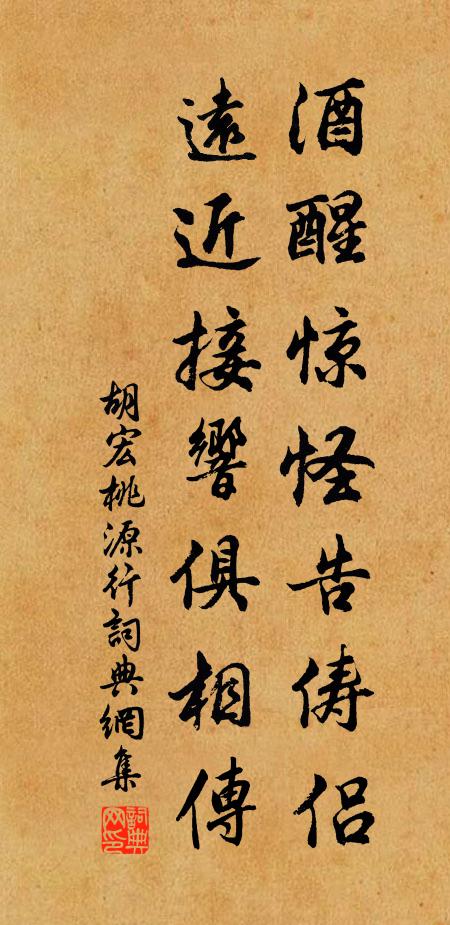 酒醒惊怪告俦侣
遠近接響俱相傳
胡宏桃源行詞典網集
詞典网印